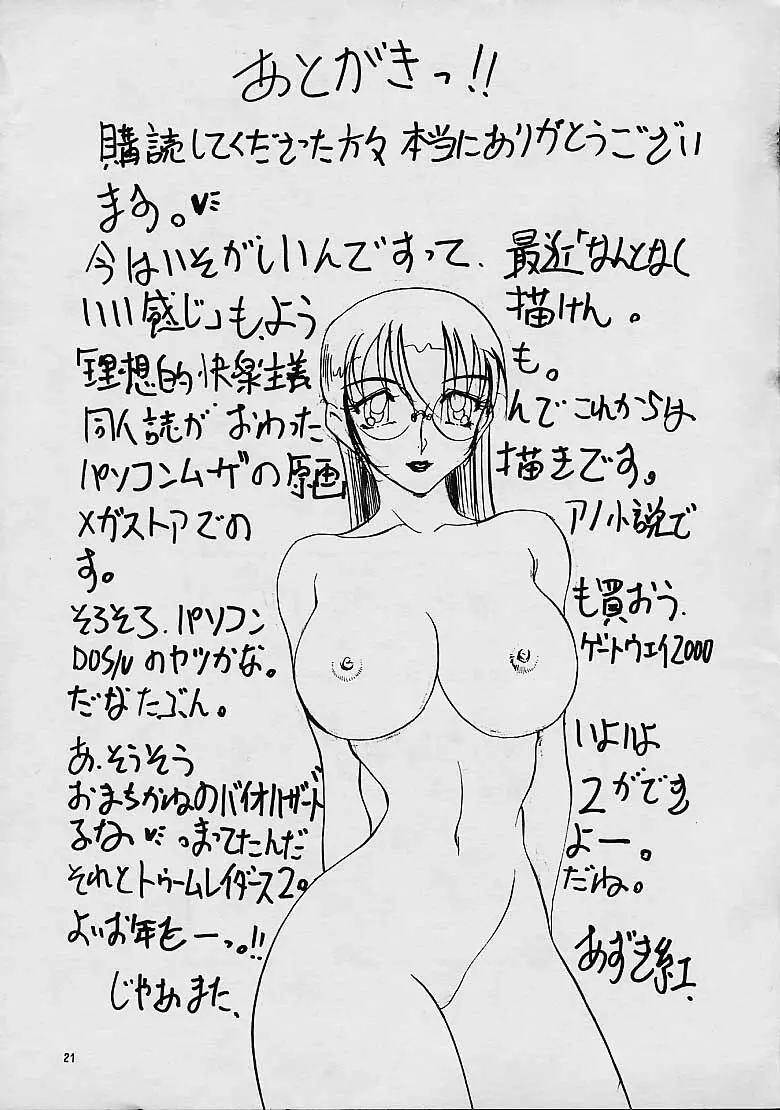 あとがきっ!!
購読してくださった方々本当にありがとうござい
ます。
今はいそがしいんですって、最近「なんとなく
いい感じ」も、よう描けん。
「理想的快楽主義も。
同人読がおわったんでこれからは
パソコンムザの原画描きです。
メガストアでのアノ小説で
す。
そろそろ、パソコンも買おう、
DOS/Vのヤツかな。ゲートウェイ2000
だなたぶん。
あ、そうそういよいよ
おまちかねのバイオハザード2ができ
るな まってたんだよー。
それとトゥームレイダース2。だね。
よいお年をーっ。!!
じゃあまた、
あずき紅、
21